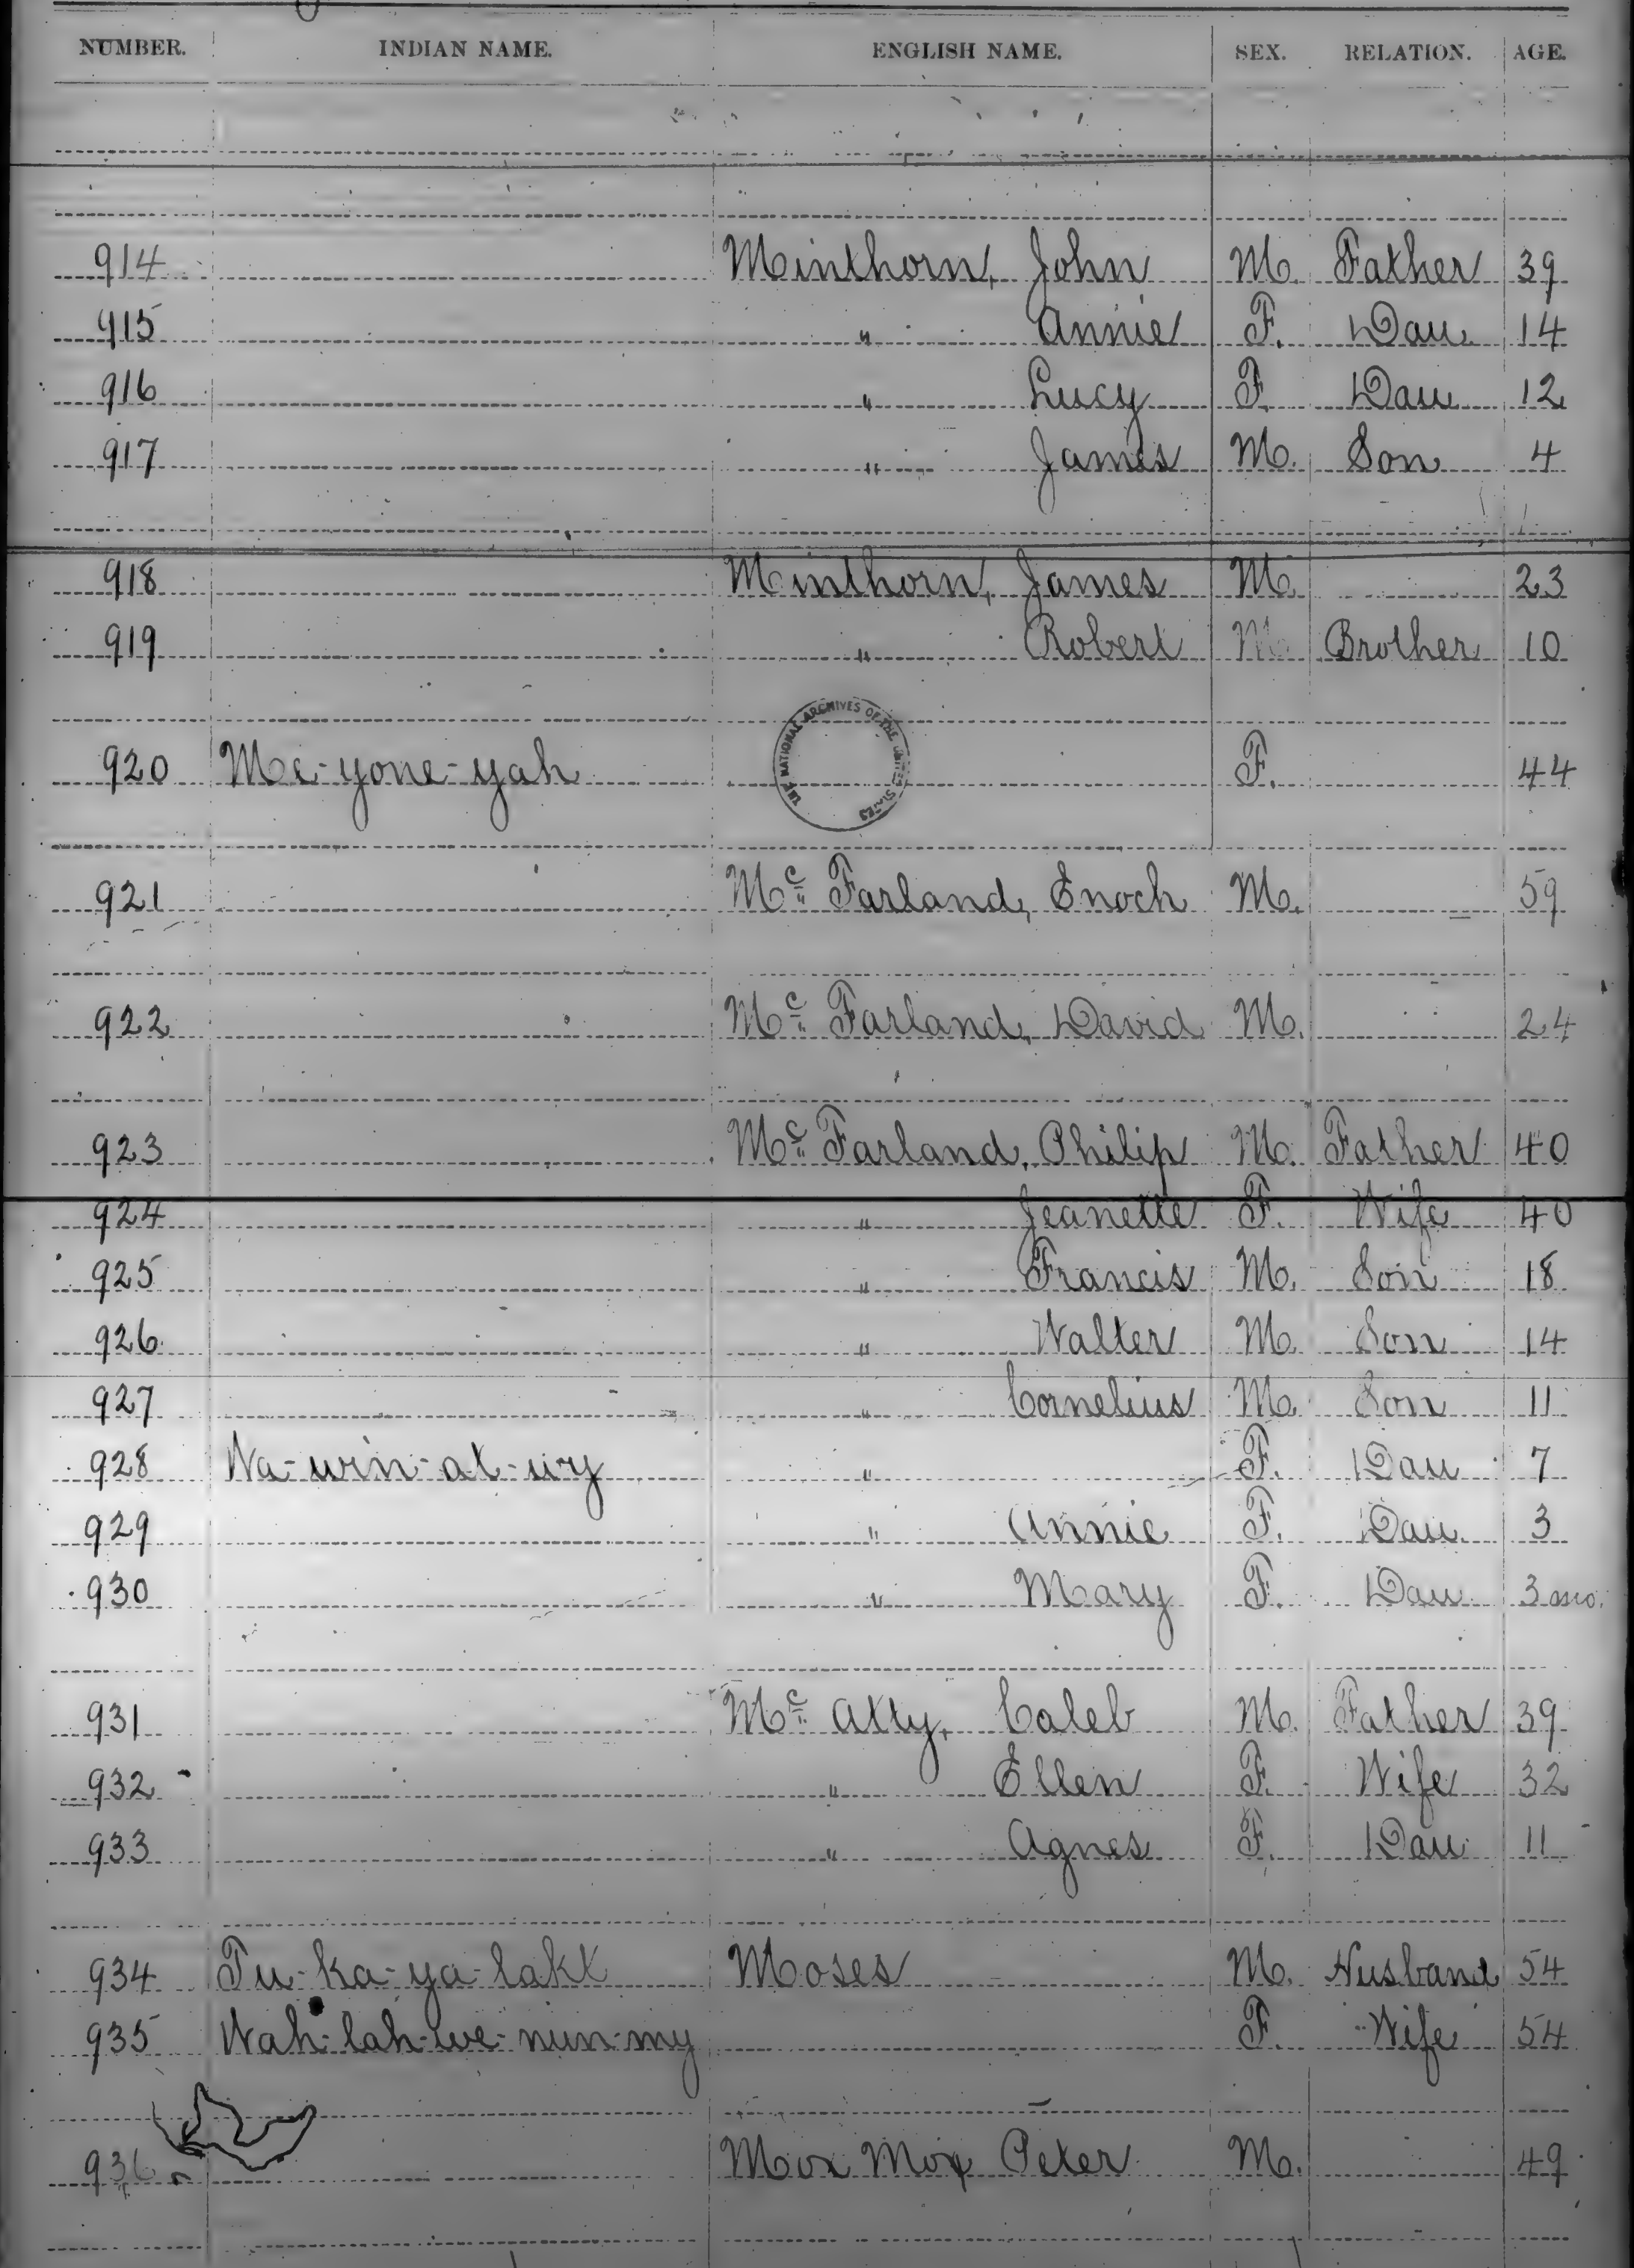 NUMBER. INDIAN NAME. ENGLISH NAME. SEX. RELATION. AGE.
914 Minthorn, John M. Father 39
915 " Annie F. Dau. 14
916 " Lucy F. Dau 12
917 " James M. Son 4
918 Minthorn, James M. 23
919 " Robert M. Brother 10
920 Me-yone-yah F. 44
THE NATIONAL ARCHIVES OF THE UNITED STATES
921 Mc Farland, Enoch M. 59
922 Mc Farland, David M. 24
923 Mc Farland, Philip M. Father 40
924 " Jeanette F. Wife 40
925 " Francis M. Son 18
926 " Walter M. Son 14
927 " Cornelius M. Son 11
928 Wa-win-at-wy " F. Dau 7
929 " Annie F. Dau. 3
930 " Mary F. Dau 3 mo.
931 Mc Atty, Caleb M. Father 39
932 " Ellen F. Wife 32
933 " Agnes F. Dau 11
934 Tu-ka-ya-lakt Moses M. Husband 54
935 Wah-lah-we-nun-my F. Wife 54
936 Mox Mox Peter M. 49